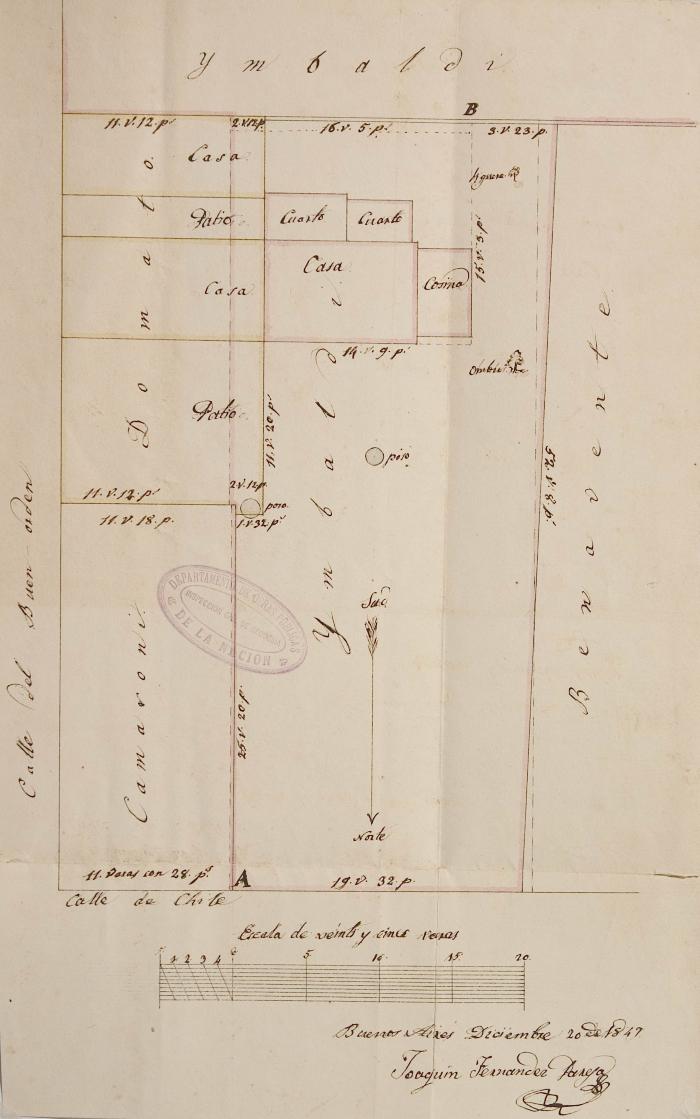 Ymbaldi
B
11. v. 12. p.
2 v. 12 p.
16. v. 5. p.
3. v. 23. p.
Casa
Higuera
Patio
Cuarto
Cuarto
15. v. 3. p.
Casa
Casa
Cosina
14. v. 9. p.
Ombú
Domato.
Patio
11. v. 20 p.
poso.
52. v. 8. p.
11. v. 12. p.
2. v. 12 p.
poso.
11. v. 18. p.
1. v. 32 p.
Ymbaldi
Benavente
Calle del Buen orden
Camaroni.
DEPARTAMENTO DE OBRAS PUBLICAS
DE LA NACION
Sud.
25. v. 20 p.
Norte
11. varas con 28. p.
A
19. v. 32. p.
Calle de Chile
Escala de veinte y cinco varas
1 2 3 4 5 10 15 20
Buenos Aires Diciembre 20 de 1847
Joaquin Fernandez Pareja